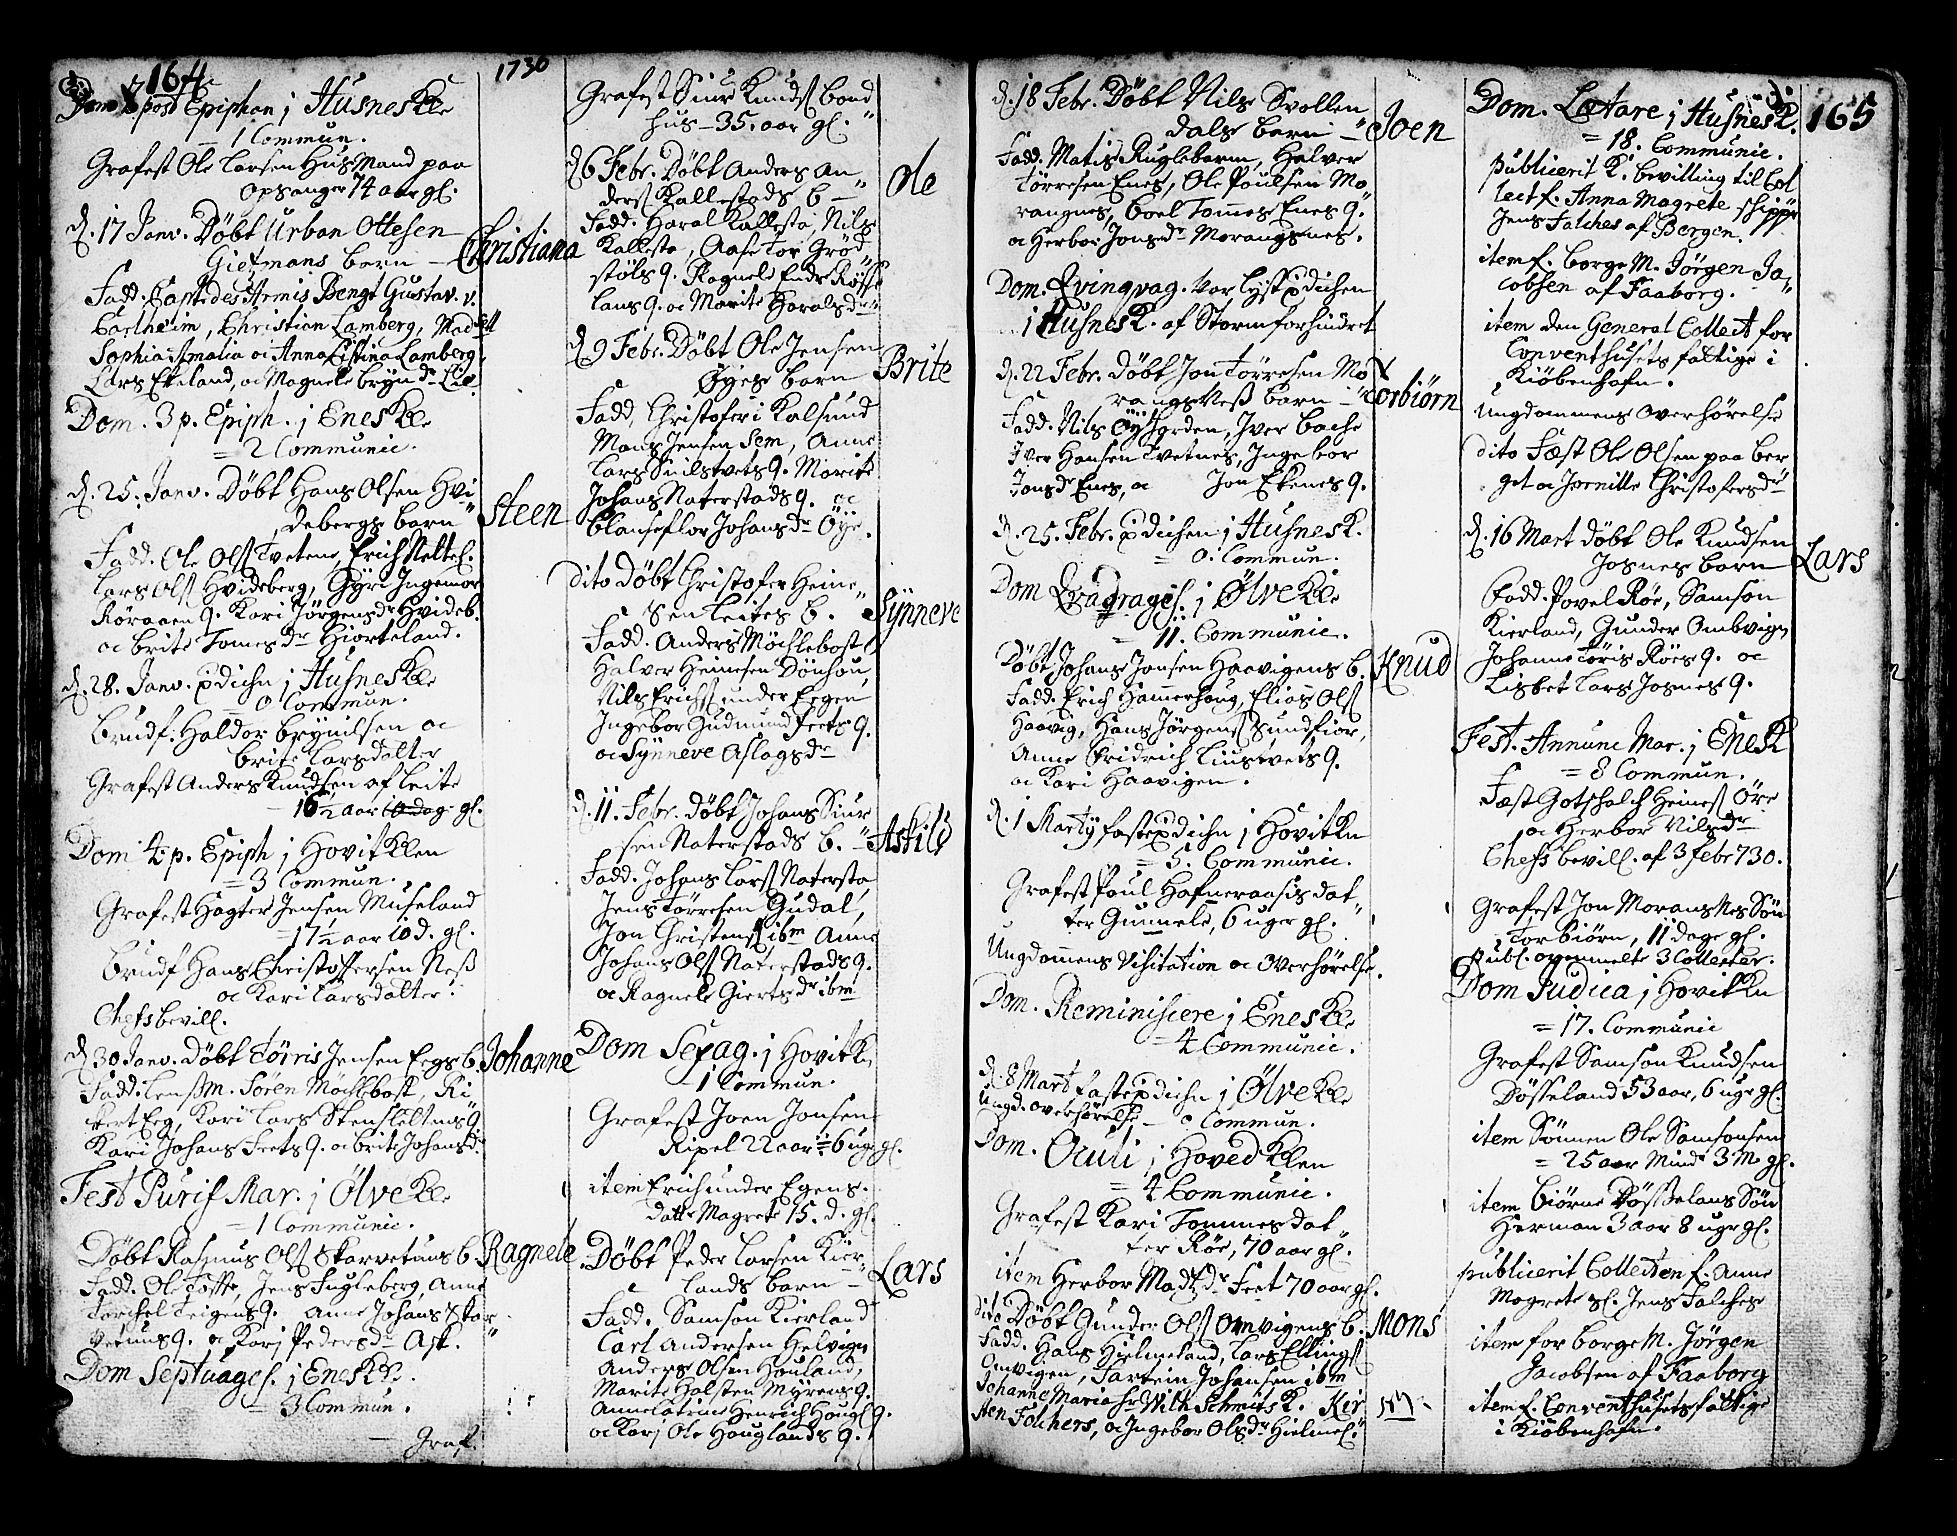 164
1730
Dom 2 post Epiphan j Husnes Kle
1 Commun.
Grafest Ole Larsen Husmand paa
Opsanger 74 aar gl.
d. 17 Janv. Døbt Urban Ottesen
Gietmans barn - Christiana
Fadd. Capt des Armis Bengt Gustav v.
Carlheim, Christian Lamberg, Mad
Sophia Amalia oc Anna Listina Lamberg
Lars Ekeland, oc Magnele Bryndr Lie
Dom. 3 p. Epiph. j Enes Kle
= 2 Communic.
d. 25. Janv. Døbt Hans Olsen Hvi
debergs barn Steen
Fadd. Ole Ols Tvetene, Erich Nettel.
Lars Ols Hvideberg, Gyri Ingemar
Røraaen Q. Kari Jørgensdr Hvideb.
oc Brite Tomesdr Hiorteland.
d. 28. Janv. pdichn j Husnes Kle
0 Commun.
Brudf. Haldor Bryniilsen oc
Brite Larsdatter
Grafest Anders Knudsen af Leite
16½ aar gl.
Dom 4 p. Epiph j Hovit Klen
= 3 Commun.
Grafest Hagter Jensen Museland
= 17½ aar 10 d. gl.
Brudf Hans Christoffersen Neß
oc Kari Larsdatter.
Chefs bevill.
d. 30 Janv. Døbt Tørris Jensen Eegs b. Johanne
Fadd. Lensm. Sören Möchlebost, Ri
kert Eeg, Kari Lars Skensletens Q
Kari Johans Feets Q. oc Brit Johansdr
Fest Purif Mar. j Ølve Kle.
= 1 Communic.
Døbt Rasmus Ols Skarvetuns b. Ragnele
Fadd. Ole Tofte, Jens Fugleberg, Anne
Torchel Teigens Q. Anne Johans Skar
vetuns Q. oc Karj Pedersdr Ask.
Dom Septuages. j Enes Kle.
= 3 Commun.
- Graf.
Grafest Siur Knuds bond
hus - 35. aar gl.
d 6 Febr. Døbt Anders An
ders Kallestads b - Ole
Fadd. Haral Kallesta, Nils
Kallesta, Aase Tor Grød
støls Q. Ragnele Endr Røsse
lans Q. oc Marite Haraldsdr
d 9 Febr. Døbt Ole Jensen
Øyes barn Brite
Fadd, Christofer i Kalsund
Mans Jensen Sem, Anne
Lars Suilstvets Q. Marite
Johans Naterstads Q. oc
Blanseflor Johansdr Øye.
Dito Døbt Christofer Heine
sen Leites b. Synneve
Fadd. Anders Möchlebost
Halver Heinesen Dönhou,
Nils Erichs under Eegen
Ingebor Gudmund Feets Q.
oc Synneve Aslagsdr
d. 11. Febr. døbt Johans Siur
sen Naterstads b. - Askild
Fadd. Johans Lars Natersta
Jens Tørresen Gudal,
Jon Christens ibm Anne
Johans Ols Naterstads Q.
oc Ragnele Giertsdr ibm
Dom Sexag. j Hovitk
1 Commun.
Grafest Joen Jonsen
Ripel 22 aar 6 ug gl.
item Erich under Egens
datr Magrete 15. d. gl.
Døbt Peder Larsen Kier
lands barn - Lars
Fadd. Samson Kierland
Carl Andersen Helvign
Anders Olsen Houland,
Marite Halsten Myrens Q.
Anne Catrine Henrich Hougl Q.
oc Karj Ole Houglands Q.
d. 18 Febr. Døbt Nils Svollen
dals barn - Joen
Fadd. Matis Ruglebarm, Halver
Törresen Enes, Ole Poulsen Mo
rangnes, Boel Tomes Enes Q.
oc Herbor Jonsdr Morangsnes.
Dom. Qvinqvag. var lyst pdichen
i Husnes K. af Storm forhindret
d. 22 Febr. Døbt Jon Tørresen Mo
rangsNeß barn - Torbiørn
Fadd. Nils Øyhorden, Jver Bache
Jver Hansen Tvetnes, Inge bor
Jonsdr Enes, oc Jon Ekenes Q.
d. 25. Febr. pdichen i Husnes K.
= 0. Commun.
Dom Qvadrages. j Ølve Kle
= 11. Communic.
Døbt Johans Jonsen Haavigens b. Knud
Fadd. Erich Hamerhoug, Elias Ols
Haavig, Hans Jørgens Sundfior,
Anne Fridrich Liustvets Q.
oc Kari Haavigen.
d. 1 Martij faste pdichn j Hovitkn
= 5. Communic.
Grafest Poul Hafneraasis dat
ter Gunnele, 6 uger gl.
Ungdommens Visitation oc Overhørelse.
Dom. Reminiscere j Enes Kle
= 4 Communic.
d. 8 Mart faste pdichn j Ølve Kle
Ungd. overhørelse - 0 Commun.
Dom. Oculi j Hoved Klen
= 4 Communic.
Grafest Kari Tommes dat
ter Røe, 70 aar gl.
item Herbor Madsdr Feet 70 aar gl.
Dito Døbt Gunder Ols Omvigens b. Mons
Fadd. Hans Hielmeland, Lars Ellings
Omvigen, Tartein Johansen ibm
Johanne Maria hr Wilh Schmits K. Kir
sten Falchers, oc Ingebor Olsdr Hielmel.
165
Dom. Lætare j Husnes K.
= 18. Communic.
publicerit K. bevilling til Col
lect f. Anna Magrete schippr
Jens Falches af Bergen.
item f. borge M. Jörgen Ja
cobsen af Faaborg.
item den General Collect for
Conventhusets fattige i
Kiöbenhafn.
Ungdommens Overhørelse
Dito Fæst Ole Olsen paa Ber
get oc Jornille Christofersdr
d. 16 Mart døbt Ole Knudsen
Josnes barn Lars
Fadd. Povel Røe, Samson
Kierland, Gunder Ombvign
Johanne Töris Röes Q. oc
Lisbet Lars Josnes Q.
Fest. Annunc Mar. j Enes K
= 8 Commun.
Fæst Gotschalch Heines Øre
oc Herbor Nilsdr
Chefs bevill. af 3 febr 730.
Grafest Jon MoransNes Søn
Torbiørn, 11 dage gl.
Publ. ovenmelte 3 Collecter.
Dom Judica j Hovitkn
= 17. Communic
Grafest Samson Knudsen
Døsseland 53 aar, 6 ugr gl.
item Sønnen Ole Samsonsen
= 25 aar mindr 3 M. gl.
item Biörne Døsselans Søn
Herman 3 aar 8 ugr gl.
publicerit Collecten f. Anne
Magrete sl. Jens Falches
item for borge M. Jörgen
Jacobsen af Faaborg
item f. Conventhusets fattige
i Kiöbenhafn.